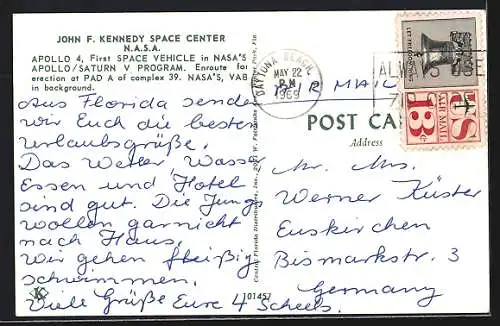 JOHN F. KENNEDY SPACE CENTER
N.A.S.A.
APOLLO 4, First SPACE VEHICLE in NASA'S
APOLLO/SATURN V PROGRAM. Enroute for
erection at PAD A of complex 39. NASA'S, VAB
in background.
Aus Florida senden
wir Euch die besten
Urlaubsgrüße.
Das Wetter, Wasser
Essen und Hotel
sind gut. Die Jungs
wollen garnicht
nach Haus.
Wir gehen fleißig
schwimmen.
Viele Grüße Eure 4 Scheels.
K
101457
Central Florida Distributors, Inc.
DAYTONA BEACH,
MAY 22
PM
1969
AIR MAIL
POST CARD
Address
LET FREEDOM RING
US
AIR MAIL
13c
Mr. Mrs.
Werner Küster
Euskirchen
Bismarkstr. 3
Germany